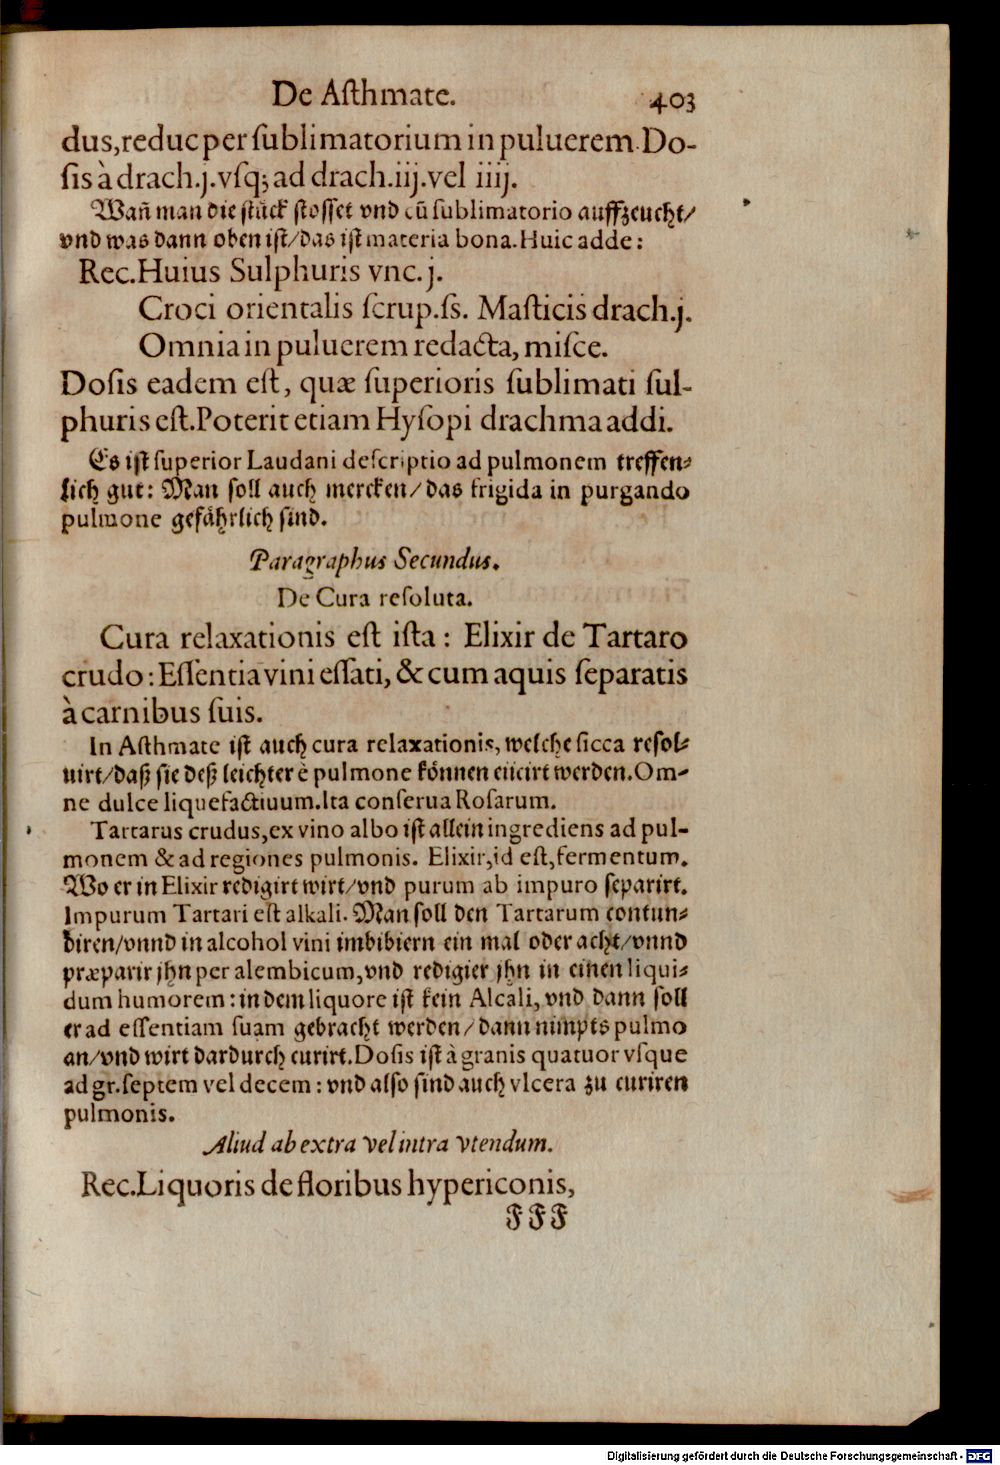 De Aſthmate. 403
dus,reduc per ſublimatorium in puluerem. Do-
ſis à drach.j.vſq; ad drach.iij.vel iiij.
Wañ man die ſtuͤck ſtoſſet vnd cū ſublimatorio auffzeucht/
vnd was dann oben iſt/das iſt materia bona. Huic adde:
Rec.Huius Sulphuris vnc.j.
Croci orientalis ſcrup.ſs. Maſticis drach.j.
Omnia in puluerem redacta, miſce.
Doſis eadem eſt, quæ ſuperioris ſublimati ſul-
phuris eſt.Poterit etiam Hyſopi drachma addi.
Es iſt ſuperior Laudani deſcriptio ad pulmonem treffen-
lich gut: Man ſoll auch mercken/das frigida in purgando
pulmone gefaͤhrlich ſind.
Paragraphus Secundus.
De Cura reſoluta.
Cura relaxationis eſt iſta: Elixir de Tartaro
crudo: Eſſentia vini eſſati, & cum aquis ſeparatis
à carnibus ſuis.
In Aſthmate iſt auch cura relaxationis, welche ſicca reſol-
uirt/daß ſie deß leichter è pulmone koͤnnen eiicirt werden.Om-
ne dulce liquefactiuum.Ita conſerua Roſarum.
Tartarus crudus,ex vino albo iſt allein ingrediens ad pul-
monem & ad regiones pulmonis. Elixir,id eſt,fermentum.
Wo er in Elixir redigirt wirt/vnd purum ab impuro ſeparirt.
Impurum Tartari eſt alkali. Man ſoll den Tartarum contun-
diren/vnnd in alcohol vini imbibiern ein mal oder acht/vnnd
præparir jhn per alembicum,vnd redigier jhn in einen liqui-
dum humorem: in dem liquore iſt kein Alcali, vnd dann ſoll
er ad eſſentiam ſuam gebracht werden/dann nimpts pulmo
an/vnd wirt dardurch curirt.Doſis iſt à granis quatuor vſque
ad gr.ſeptem vel decem: vnd alſo ſind auch vlcera zu curiren
pulmonis.
Aliud ab extra vel intra vtendum.
Rec.Liquoris de floribus hypericonis,
FFF
Digitalisierung gefördert durch die Deutsche Forschungsgemeinschaft - DFG